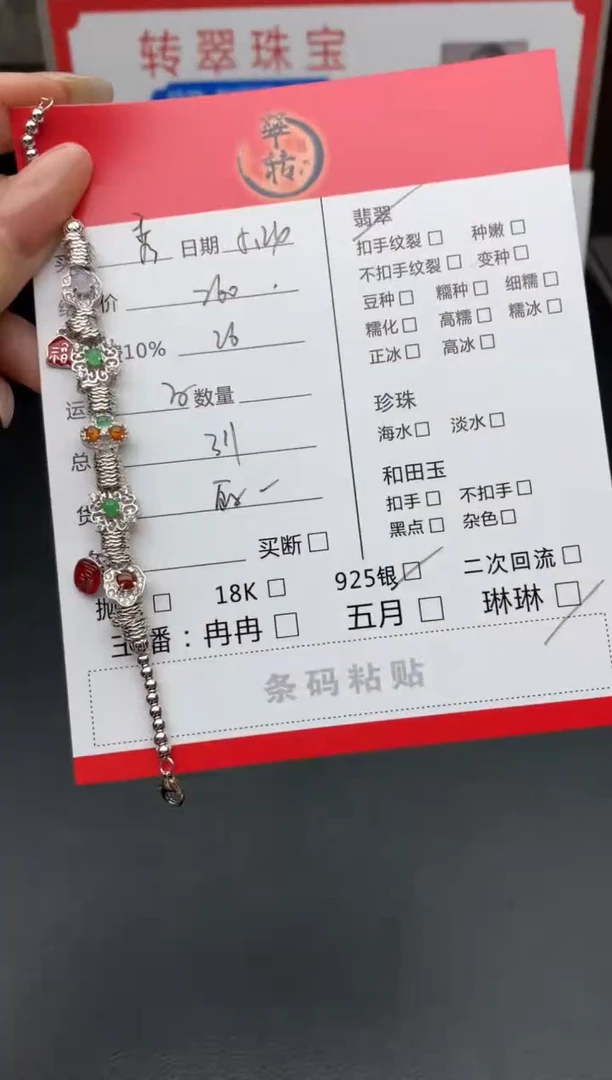 转翠珠宝
翠
转
日期
价 260
10% 26
运 数量
总
货
买断
抛 18K 925银 二次回流
主播：冉冉 五月 琳琳
翡翠
扣手纹裂 种嫩
不扣手纹裂 变种
豆种 糯种 细糯
糯化 高糯 糯冰
正冰 高冰
珍珠
海水 淡水
和田玉
扣手 不扣手
黑点 杂色
条码粘贴
福